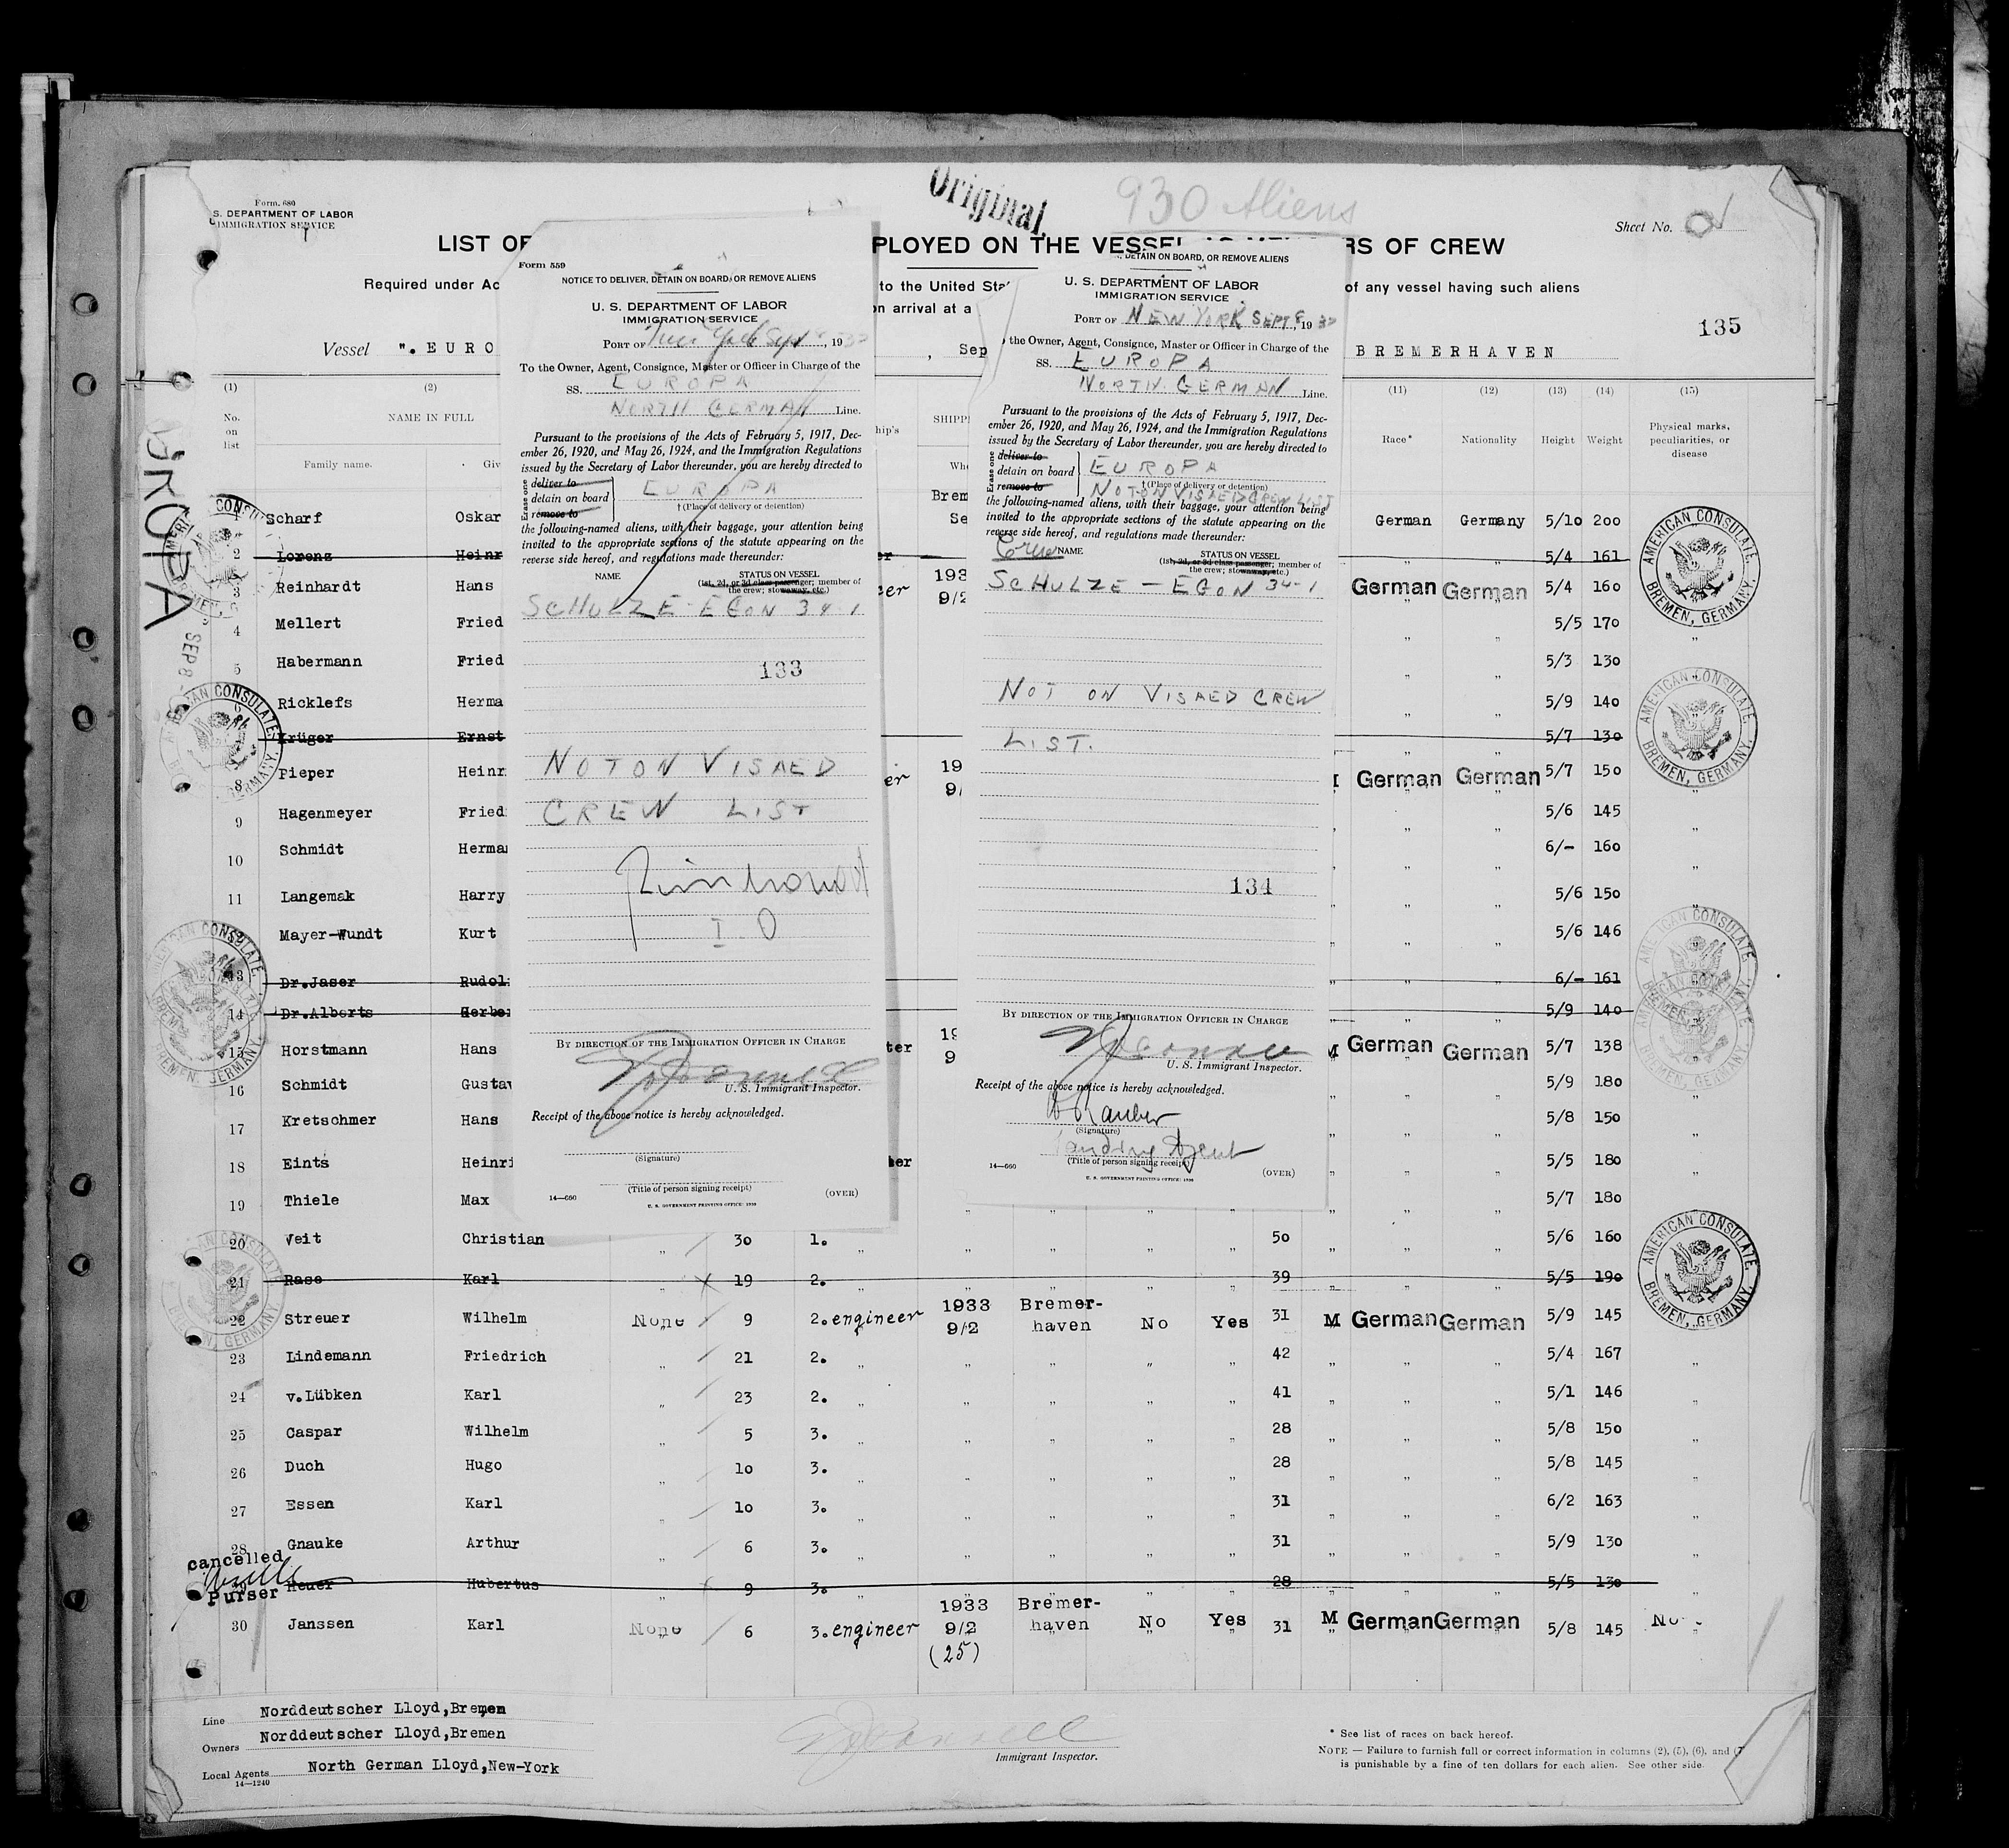 Original
930 Aliens
Form. 680
S. DEPARTMENT OF LABOR
IMMIGRATION SERVICE
Sheet No.
LIST OF
PLOYED ON THE VESSEL
RS OF CREW
Required under Ac
to the United Sta
of any vessel having such aliens
on arrival at a
135
Vessel ". EURO
, Sep
BREMERHAVEN
EUROPA
SEP 8
(1) (2) (11) (12) (13) (14) (15)
No. on list
NAME IN FULL
Family name. Giv
hip's
SHIPP
Whe
Race* Nationality Height Weight Physical marks, peculiarities, or disease
Brem
Se
Form 559
NOTICE TO DELIVER, DETAIN ON BOARD, OR REMOVE ALIENS
U. S. DEPARTMENT OF LABOR
IMMIGRATION SERVICE
PORT OF New York Sept 8, 1933
To the Owner, Agent, Consignee, Master or Officer in Charge of the
SS. EUROPA
NORTH GERMAN Line.
Pursuant to the provisions of the Acts of February 5, 1917, Dec-
ember 26, 1920, and May 26, 1924, and the Immigration Regulations
issued by the Secretary of Labor thereunder, you are hereby directed to
Erase one
deliver to
detain on board EUROPA
remove to
†(Place of delivery or detention)
the following-named aliens, with their baggage, your attention being
invited to the appropriate sections of the statute appearing on the
reverse side hereof, and regulations made thereunder:
NAME STATUS ON VESSEL
(1st, 2d, or 3d class passenger; member of
the crew; stowaway, etc.)
SCHULZE - EGON 34-1
133
NOT ON VISAED
CREW LIST
I O
BY DIRECTION OF THE IMMIGRATION OFFICER IN CHARGE
U. S. Immigrant Inspector.
Receipt of the above notice is hereby acknowledged.
(Signature)
(Title of person signing receipt)
14—660
(OVER)
U. S. GOVERNMENT PRINTING OFFICE: 1930
, DETAIN ON BOARD, OR REMOVE ALIENS
U. S. DEPARTMENT OF LABOR
IMMIGRATION SERVICE
PORT OF NEW YORK SEPT 8, 1933
the Owner, Agent, Consignee, Master or Officer in Charge of the
SS. EUROPA
NORTH GERMAN Line.
Pursuant to the provisions of the Acts of February 5, 1917, Dec-
ember 26, 1920, and May 26, 1924, and the Immigration Regulations
issued by the Secretary of Labor thereunder, you are hereby directed to
Erase one
deliver to
detain on board EUROPA
remove to
†(Place of delivery or detention)
NOT ON VISAED CREW LIST
the following-named aliens, with their baggage, your attention being
invited to the appropriate sections of the statute appearing on the
reverse side hereof, and regulations made thereunder:
Crew
NAME STATUS ON VESSEL
(1st, 2d, or 3d class passenger; member of
the crew; stowaway, etc.)
SCHULZE — EGON 34-1
NOT ON VISAED CREW
LIST.
134
BY DIRECTION OF THE IMMIGRATION OFFICER IN CHARGE
U. S. Immigrant Inspector.
Receipt of the above notice is hereby acknowledged.
(Signature)
Landing Agent
(Title of person signing receipt)
14—660
(OVER)
U. S. GOVERNMENT PRINTING OFFICE: 1930
1 Scharf Oskar German Germany 5/10 200
2 Lorenz Heinr er 5/4 161
3 Reinhardt Hans er 193 9/2 German German 5/4 160
4 Mellert Fried " " 5/5 170 "
5 Habermann Fried " " 5/3 130 "
6 Ricklefs Herma " " 5/9 140
7 Krüger Ernst " " 5/7 130
8 Pieper Heinr er 19 9/ German German 5/7 150 "
9 Hagenmeyer Fried " " 5/6 145 "
10 Schmidt Herma " " 6/- 160 "
11 Langemak Harry " " 5/6 150 "
12 Mayer-Wundt Kurt " " 5/6 146
13 Dr.Jaser Rudol " " 6/- 161
14 Dr.Alberts Herbe " " 5/9 140
15 Horstmann Hans ter 19 9 M German German 5/7 138
16 Schmidt Gustav " " 5/9 180 "
17 Kretschmer Hans " " 5/8 150 "
18 Eints Heinri er " " 5/5 180 "
19 Thiele Max " " " " " " 5/7 180 "
20 Veit Christian " 30 1. " " " " " 50 " " " 5/6 160
21 Rase Karl " 19 2. 39 " " " 5/5 190
22 Streuer Wilhelm None 9 2. engineer 1933 9/2 Bremer-haven No Yes 31 M German German 5/9 145
23 Lindemann Friedrich " 21 2. " " " " " 42 " " " 5/4 167 "
24 v.Lübken Karl " 23 2. " " " " " 41 " " " 5/1 146 "
25 Caspar Wilhelm " 5 3. " " " " " 28 " " " 5/8 150 "
26 Duch Hugo " 10 3. " " " " " 28 " " " 5/8 145 "
27 Essen Karl " 10 3. " " " " " 31 " " " 6/2 163 "
28 Gnauke Arthur " 6 3. " " " " " 31 " " " 5/9 130 "
cancelled
29 Heuer Hubertus " 9 3. " " " " " 28 " " " 5/5 130 "
Purser
30 Janssen Karl None 6 3. engineer 1933 9/2 Bremer-haven No Yes 31 M German German 5/8 145 No
(25)
AMERICAN CONSULATE. BREMEN, GERMANY.
AMERICAN CONSULATE. BREMEN, GERMANY.
AMERICAN CONSULATE. BREMEN, GERMANY.
AMERICAN CONSULATE. BREMEN, GERMANY.
Line Norddeutscher Lloyd,Bremen
Owners Norddeutscher Lloyd,Bremen
Local Agents North German Lloyd,New-York
14—1240
Immigrant Inspector.
* See list of races on back hereof.
NOTE — Failure to furnish full or correct information in columns (2), (5), (6), and (7
is punishable by a fine of ten dollars for each alien. See other side.